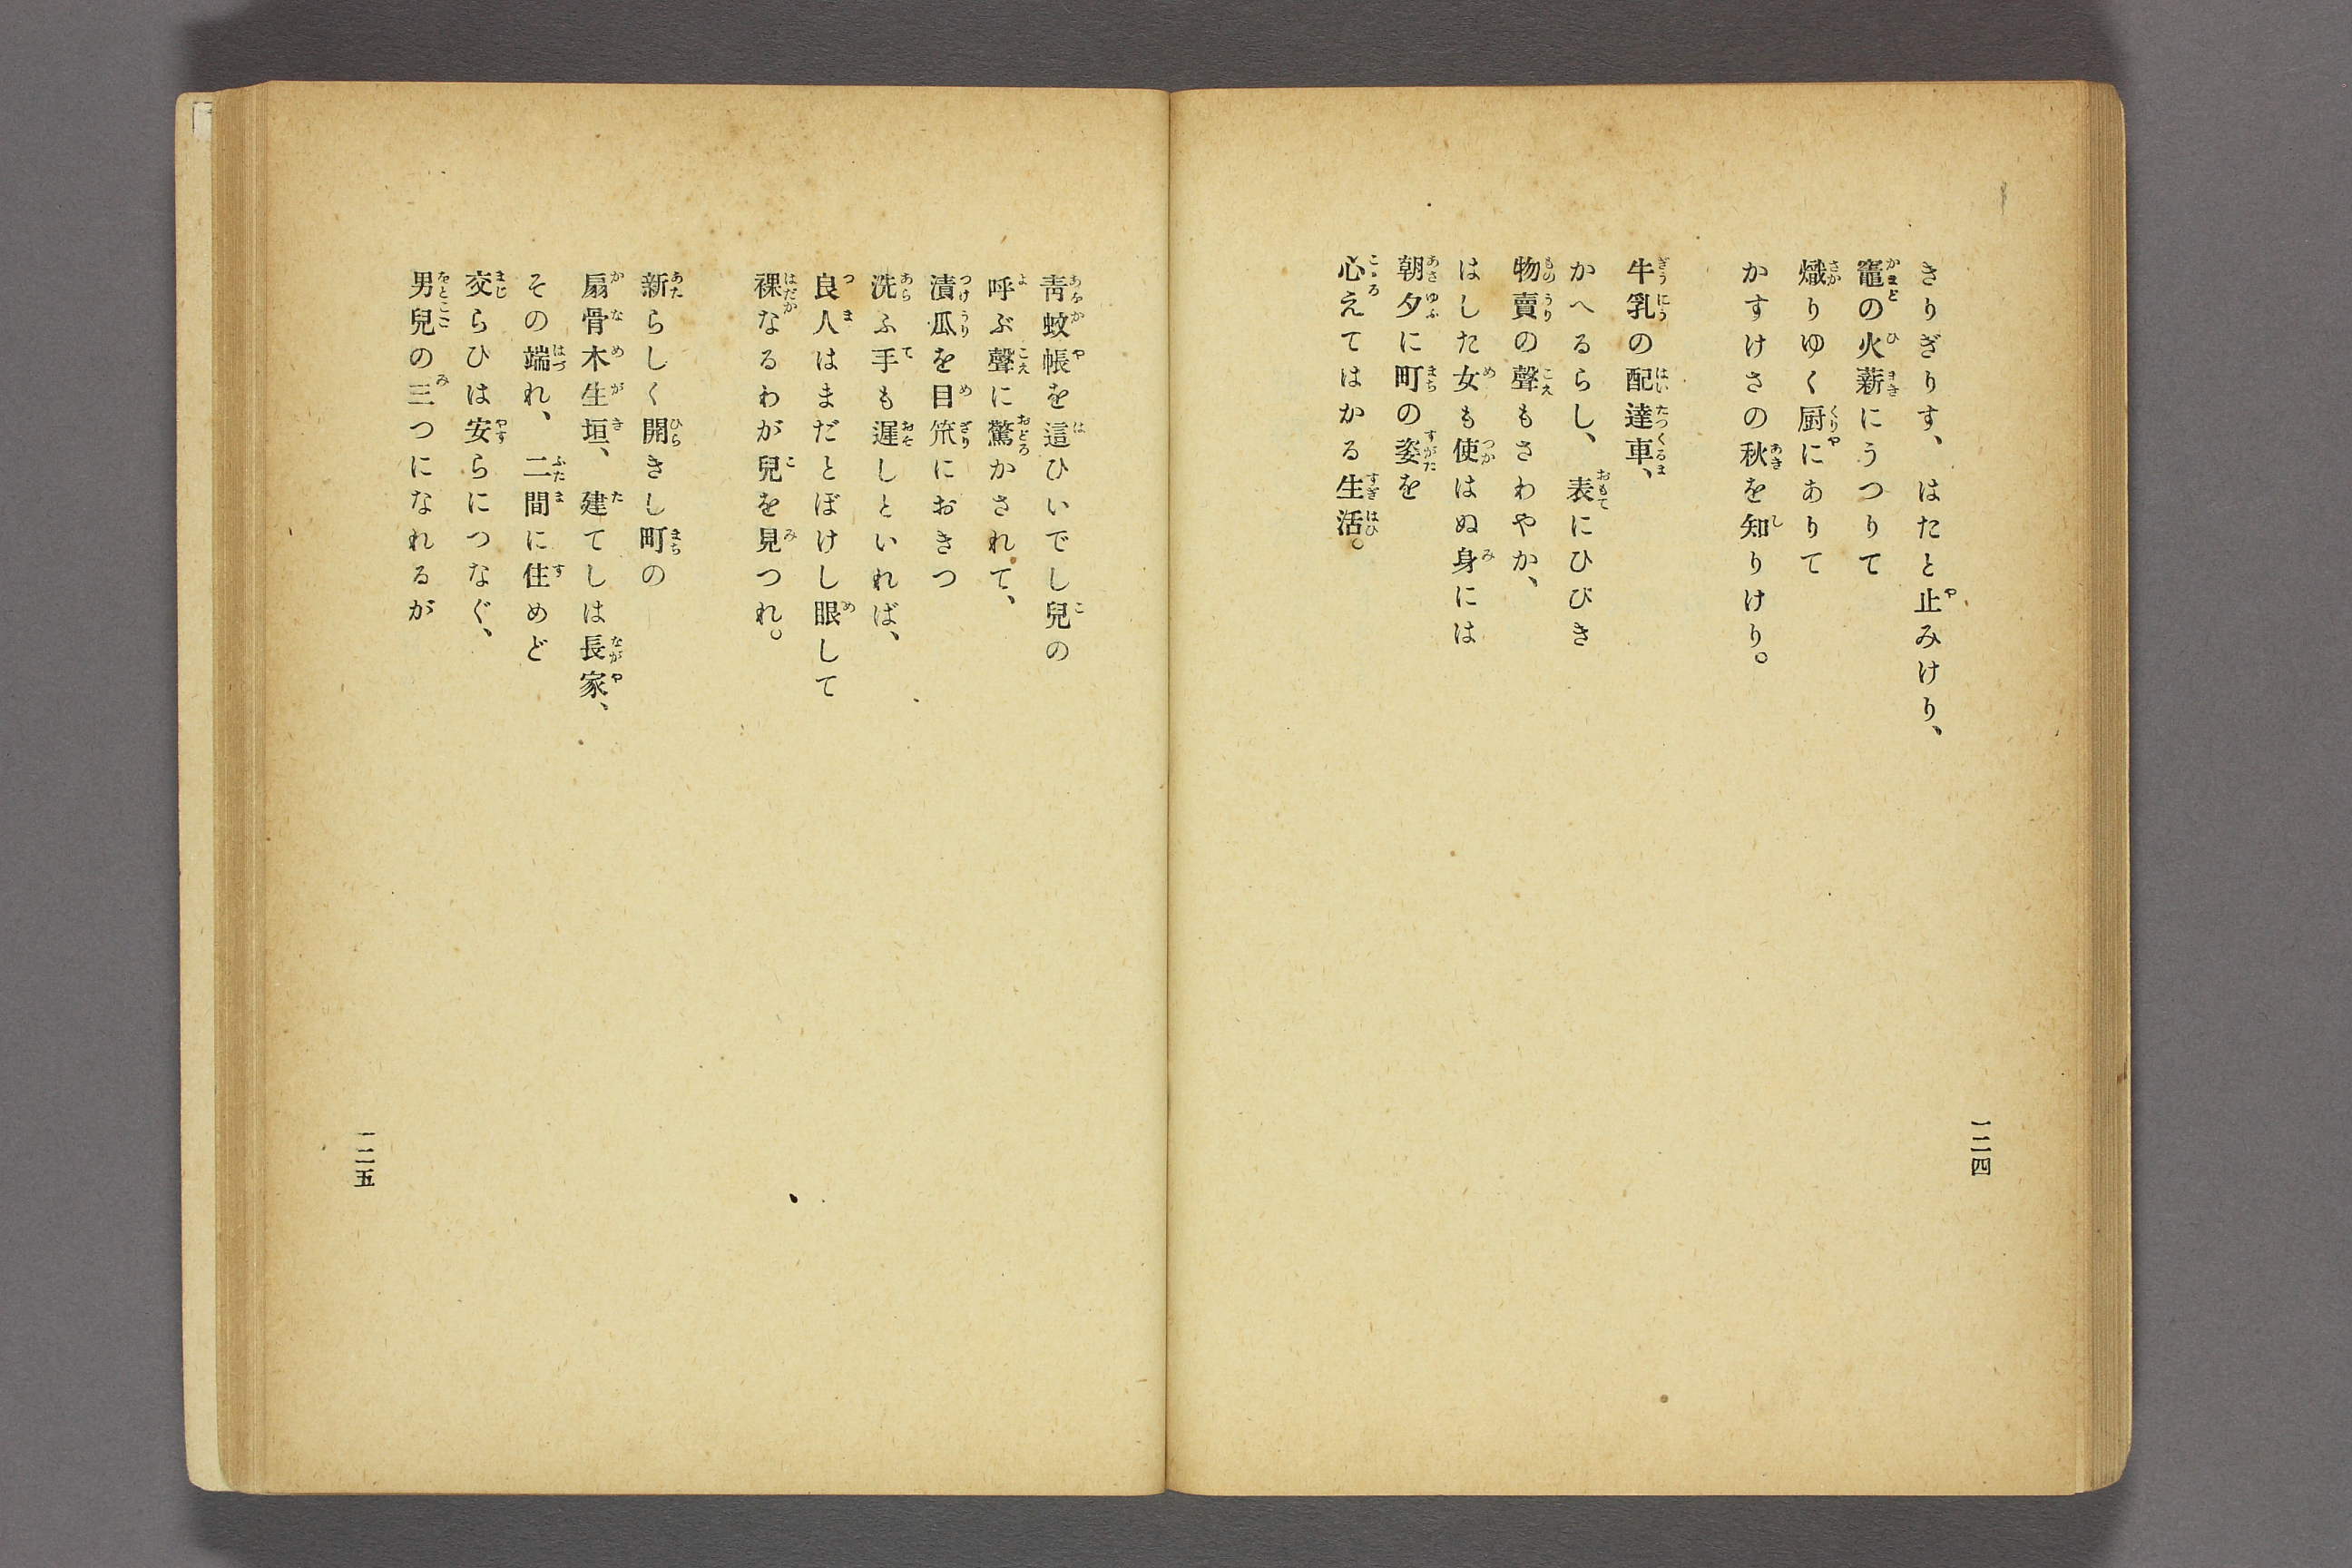 きりぎりす、はたと止みけり、
竈の火薪にうつりて
熾りゆく厨にありて
かすけさの秋を知りけり。
牛乳の配達車、
かへるらし、表にひびき
物賣の聲もさわやか、
はした女も使はぬ身には
朝夕に町の姿を
心えてはかる生活。
一二四
靑蚊帳を這ひいでし兒の
呼ぶ聲に驚かされて、
漬瓜を目笊におきつ
洗ふ手も遲しといれば、
良人はまだとぼけし眼して
裸なるわが兒を見つれ。
新らしく開きし町の
扇骨木生垣、建てしは長家、
その端れ、二間に住めど
交らひは安らにつなぐ、
男兒の三つになれるが
一二五